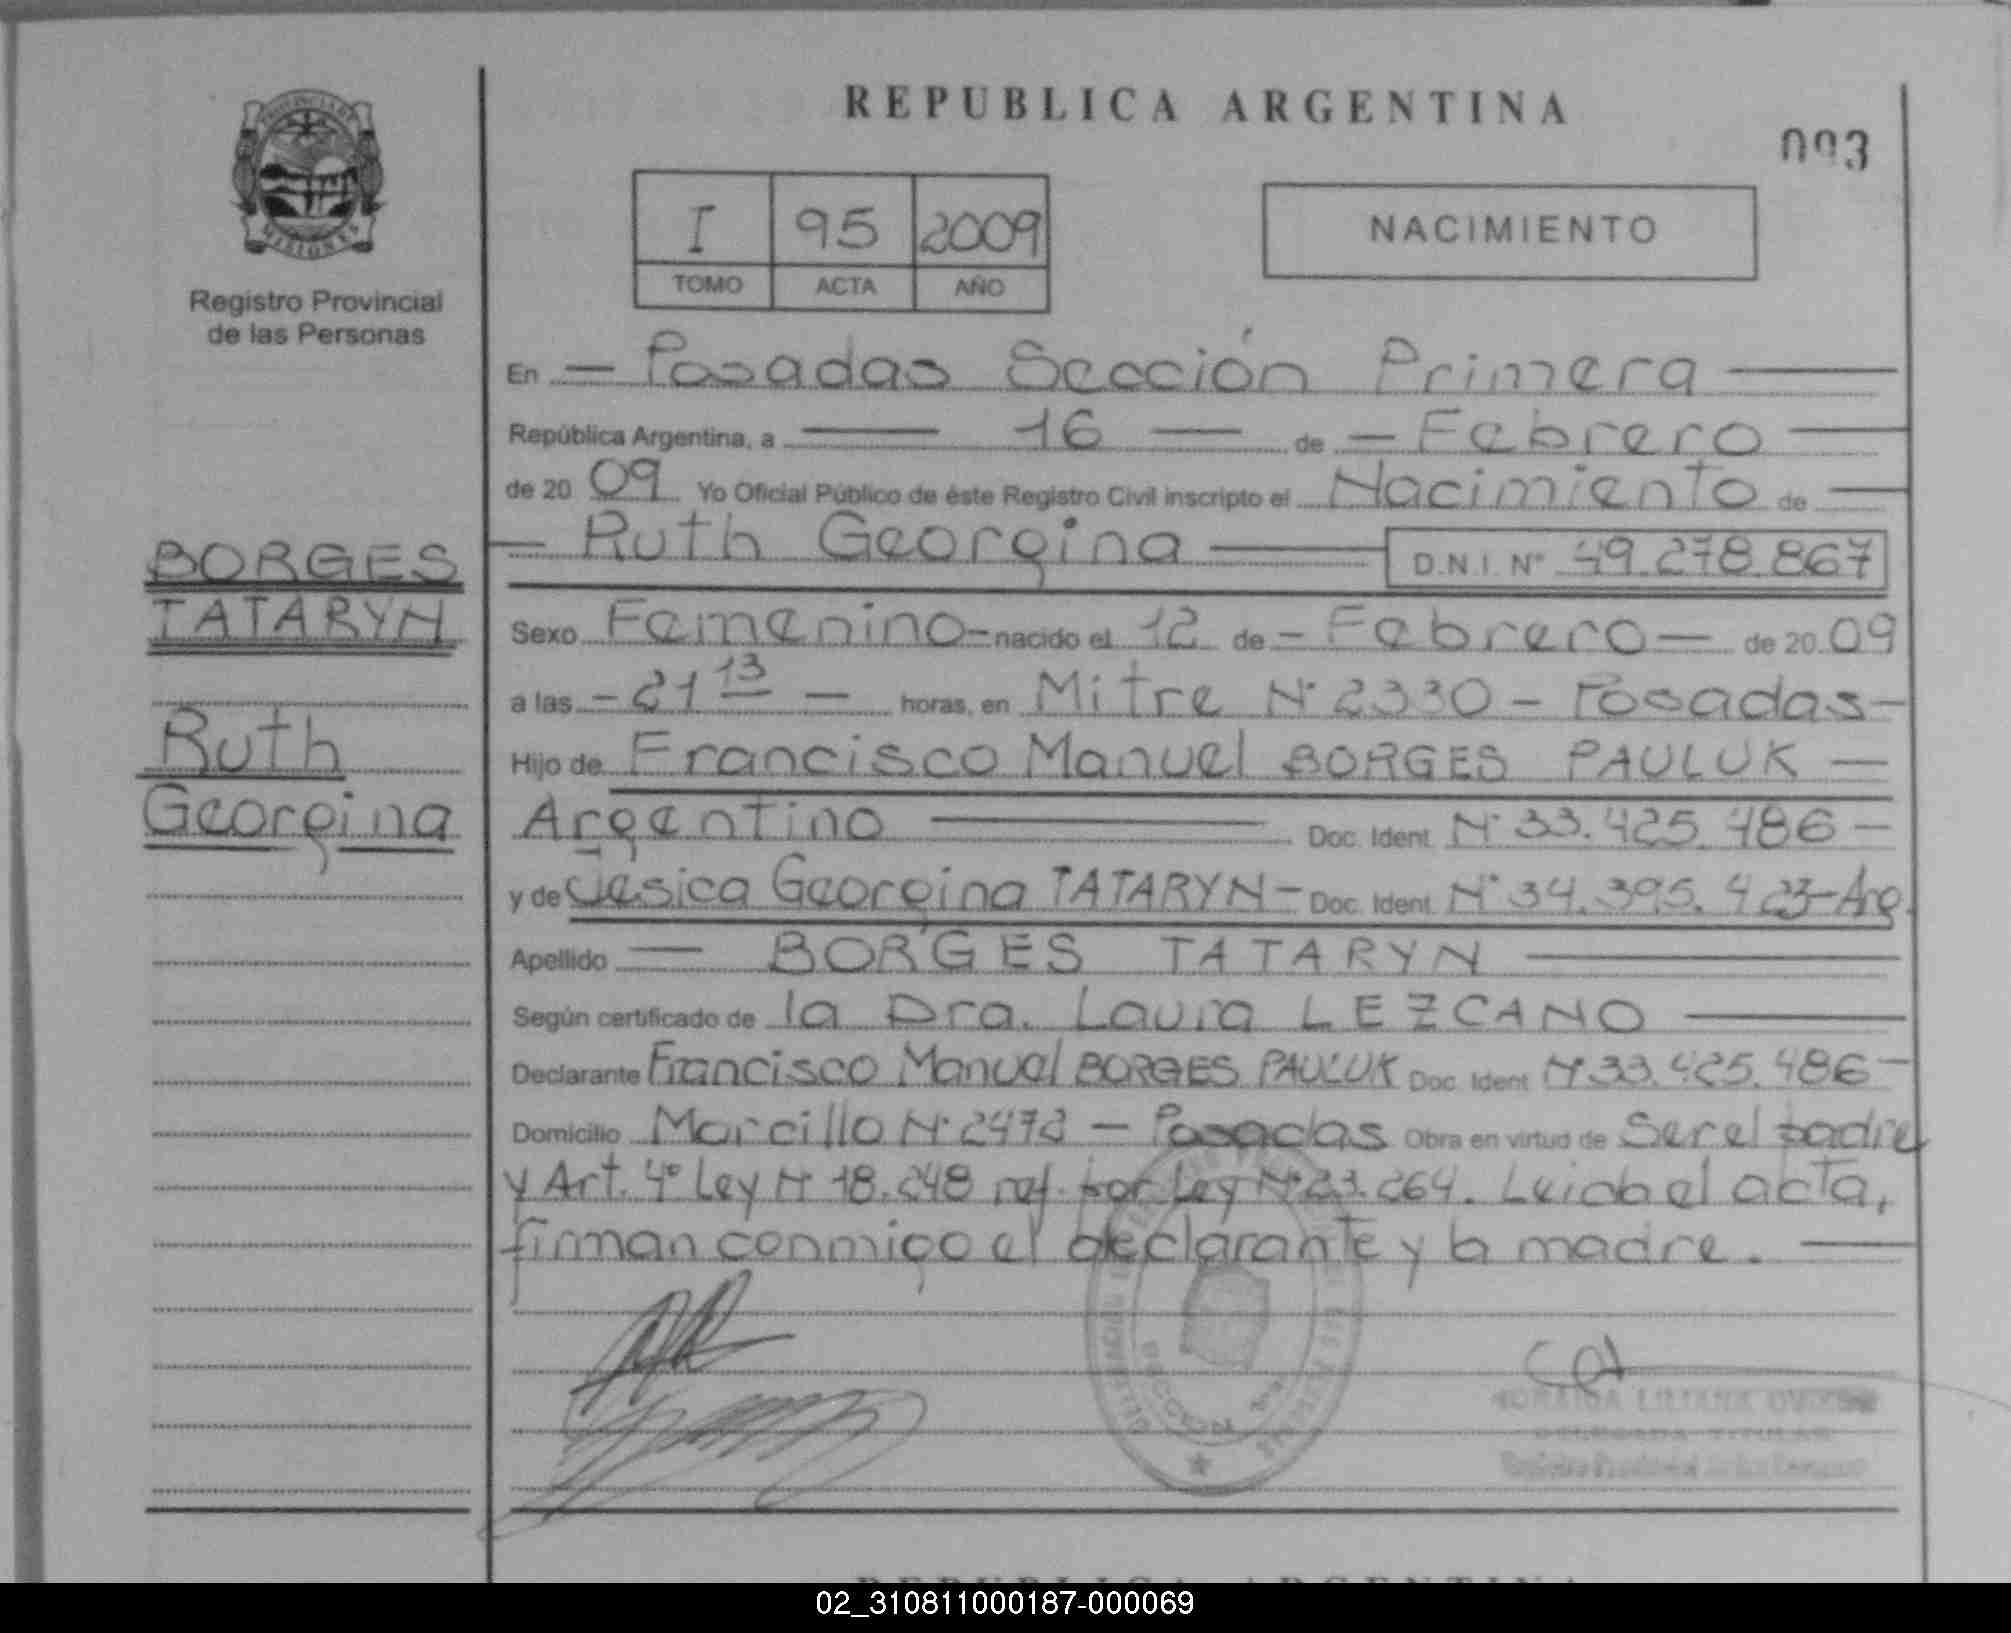 REPUBLICA ARGENTINA
093
PROVINCIA DE
MISIONES
Registro Provincial
de las Personas
I 95 2009
TOMO ACTA AÑO
NACIMIENTO
BORGES
TATARYN
Ruth
Georgina
En Posadas Sección Primera
República Argentina, a 16 de Febrero
de 20 09 Yo Oficial Público de éste Registro Civil inscripto el Nacimiento de
Ruth Georgina D.N.I. Nº 49.278.867
Sexo Femenino nacido el 12 de Febrero de 20 09
a las 21 13 horas, en Mitre Nº 2330 - Posadas
Hijo de Francisco Manuel BORGES PAULUK
Argentino Doc. Ident. Nº 33.425.486
y de Jesica Georgina TATARYN Doc. Ident. Nº 34.395.423 - Arg.
Apellido BORGES TATARYN
Según certificado de la Dra. Laura LEZCANO
Declarante Francisco Manuel BORGES PAULUK Doc. Ident Nº 33.425.486
Domicilio Morcillo Nº 2472 - Posadas Obra en virtud de Ser el padre
y Art. 4º Ley Nº 18.248 ref. por Ley Nº 23.264. Leida el acta,
firman conmigo el declarante y la madre.
LILIANA
DELEGADA TITULAR
REPUBLICA ARGENTINA
02_310811000187-000069